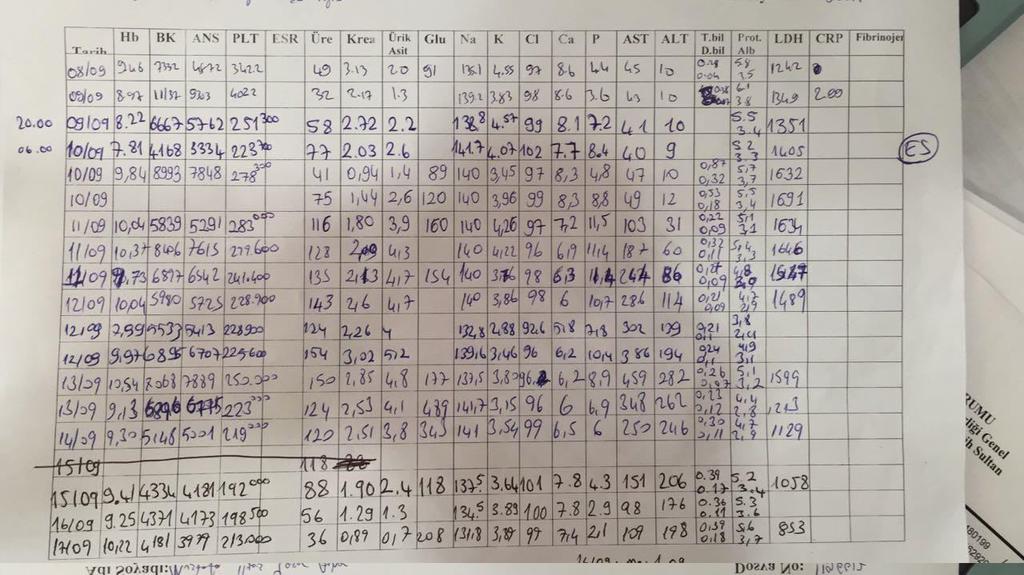 Tarih Hb BK ANS PLT ESR Üre Krea Ürik Asit Glu Na K Cl Ca P AST ALT T.bil D.bil Prot. Alb LDH CRP Fibrinojen
08/09 9.46 7332 4872 3422 49 3.13 2.0 91 135.1 4.55 97 8.6 4.4 45 10 0.04 5.8 3.5 1242
09/09 8.97 11137 4022 32 2.17 1.3 139.2 3.83 98 8.6 3.6 43 10 6.1 3.8 1349 2.09
20.00 09/09 8.22 6667 5762 251300 58 2.72 2.2 138.8 4.57 99 8.1 7.2 41 10 5.5 3.4 1351
06.00 10/09 7.81 4168 3334 223700 77 2.03 2.6 141.7 4.07 102 7.7 8.4 40 9 5.2 3.3 1405 ES
10/09 9,84 8993 7848 278300 41 0,94 1,4 89 140 3,45 97 8,3 4,8 47 10 0,87 0,32 5,7 3,7 1632
10/09 75 1,44 2,6 120 140 3,96 99 8,3 8,8 49 12 0,53 0,18 5,5 3,4 1691
11/09 10,04 5839 5291 283000 116 1,80 3,9 160 140 4,26 97 7,2 11,5 103 31 0,22 0,09 5,1 3,1 1634
11/09 10,37 8406 7615 279.600 128 4,3 140 4,22 96 6,9 11,4 187 60 0,32 0,11 5,4 3,3 1646
11/09 9,73 6897 6542 241.400 135 2,13 4,7 154 140 98 6,3 11,4 247 86 0,27 0,09 4,8
12/09 10,04 5980 5725 228.900 143 2,6 4,7 140 3,86 98 6 10,7 286 114 0,21 0,09 4,7 2,9 1489
12/09 7,99 5533 5413 228900 124 2,26 4 132,8 2,88 92,6 5,8 7,8 302 139 0,21 0,1 3,8
12/09 9,97 6895 6707 225.600 154 3,02 5,2 139,6 3,46 96 6,2 10,4 386 194 0,24 0,1 4,9 3,1
13/09 10,54 8068 7889 250.000 150 2,85 4,8 177 137,5 3,80 96,2 6,2 8,9 459 282 0,26 0,07 5,1 3,2 1599
13/09 9,13 6896 6775 223000 124 2,53 4,1 489 141,7 3,15 96 6 6,9 348 262 0,23 0,12 4,4 2,8 1213
14/09 9,30 5,148 5001 219000 120 2,51 3,8 343 141 3,54 99 6,5 6 250 246 0,30 0,11 4,7 2,9 1129
15/09 118
15/09 9.41 4334 4181 192000 88 1.90 2.4 118 137.5 3.64 101 7.8 4.3 151 206 0.39 0.17 5.2 3.4 1058
16/09 9.25 4371 4173 198500 56 1.29 1.3 134.5 3.89 100 7.8 2.9 98 176 0.36 0.11 5.3 3.6
17/09 10,22 4181 3979 213.000 36 0,89 0,7 208 131,8 3,89 97 7,4 2,1 109 198 0,59 0,18 5,6 3,7 853
Adı Soyadı: Dosya No:
RUMU
diği Genel
ih Sultan